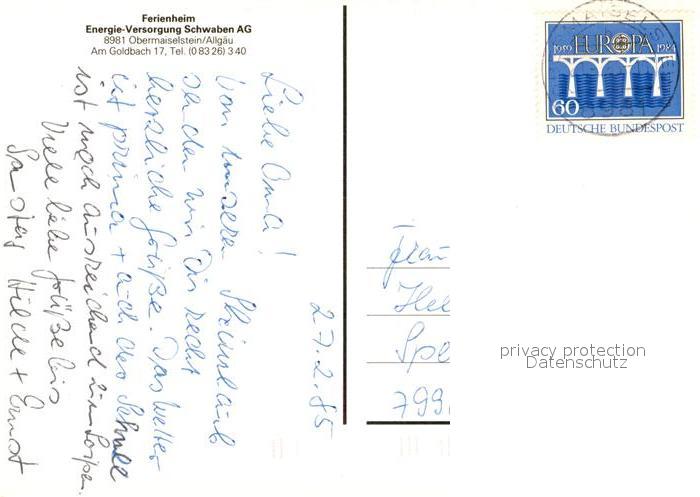 Ferienheim
Energie-Versorgung Schwaben AG
8981 Obermaiselstein/Allgäu
Am Goldbach 17, Tel. (0 83 26) 3 40
27.2.85
Liebe Oma!
Von unserem Skiurlaub
senden wir Dir recht
herzliche Grüße. Das Wetter
ist prima + auch der Schnee
ist noch ausreichend zum Loipen.
Viele liebe Grüße bis
Samstag Hilde + Ernst
1959 EUROPA 1984
60
DEUTSCHE BUNDESPOST
Frau
Hel
Spe
799
privacy protection
Datenschutz